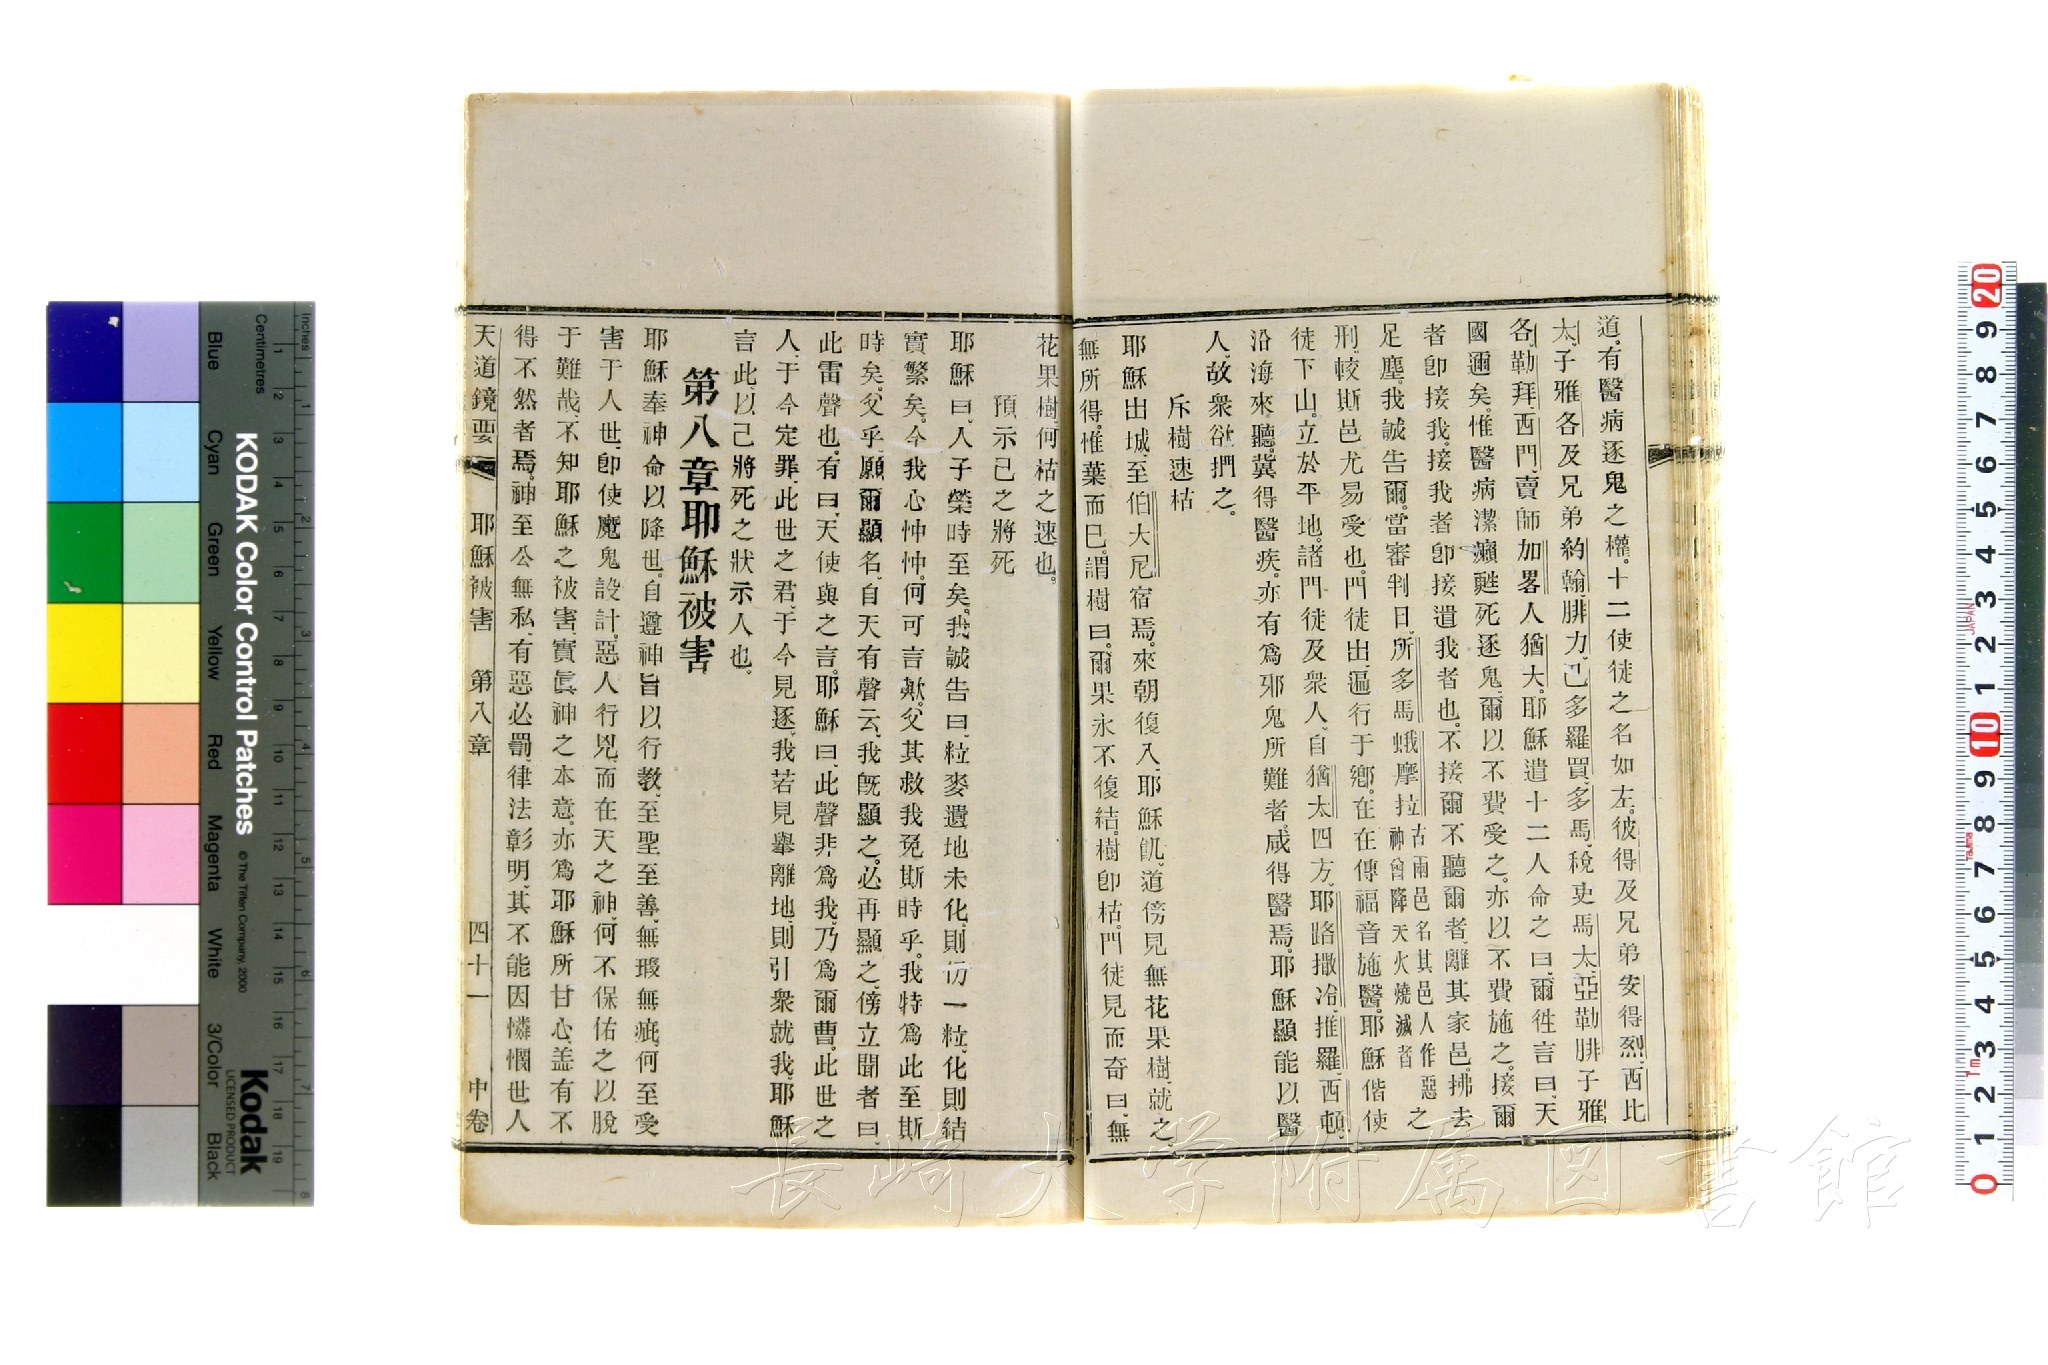 道。有醫病逐鬼之權。十二使徒之名如左。彼得及兄弟安得烈、西比
太、子雅各及兄弟約翰、腓力、己多羅買、多馬、稅吏馬太、亞勒腓子雅
各、勒拜、西門、賣師加畧人猶大。耶穌遣十二人命之曰、爾徃言曰、天
國邇矣。惟醫病潔癩甦死逐鬼、爾以不費受之。亦以不費施之。接爾
者卽接我。接我者卽接遣我者也。不接爾不聽爾者、離其家邑。拂去
足塵。我誠告爾。當審判日、所多馬蛾摩拉古兩邑名其邑人作惡神曾降天火燒滅者之
刑、較斯邑尤易受也。門徒出、遍行于鄉。在在傳福音施醫。耶穌偕使
徒下山。立於平地。諸門徒及衆人、自猶太四方、耶路撒冷、推羅、西頓、
沿海來聽。冀得醫疾。亦有爲邪鬼所難者、咸得醫焉。耶穌顯能以醫
人、故衆欲捫之。
斥樹速枯
耶穌出城、至伯大尼宿焉。來朝復入、耶穌飢。道傍見無花果樹、就之、
無所得。惟葉而已。謂樹曰。爾果永不復結。樹卽枯。門徒見而奇曰、無
花果樹、何枯之速也。
預示己之將死
耶穌曰、人子榮時至矣。我誠吿曰、粒麥遺地未化、則仍一粒、化則結
實繁矣。今我心忡忡。何可言歟。父其救我免斯時乎。我特爲此至斯
時矣。父乎、願爾顯名、自天有聲云、我旣顯之。必再顯之、傍立聞者曰、
此雷聲也。有曰、天使與之言。耶穌曰、此聲非爲我乃爲爾曹。此世之
人、于今定罪、此世之君、于今見逐、我若見舉離地、則引衆就我、耶穌
言此、以己將死之狀示人也。
第八章耶穌被害
耶穌奉神命以降世。自遵神旨以行敎、至聖至善、無瑕無疵、何至受
害于人世、卽使魔鬼設計。惡人行兇、而在天之神、何不保佑之以脫
于難哉、不知耶穌之被害、實眞神之本意。亦爲耶穌所甘心、盖有不
得不然者焉。神至公無私、有惡必罰、律法彰明、其不能因憐憫世人
天道鏡要 耶穌被害 第八章 四十一 中卷
KODAK Color Control Patches
© The Tiffen Company, 2000
Kodak
LICENSED PRODUCT
Inches
Centimetres
Blue Cyan Green Yellow Red Magenta White 3/Color Black
長崎大学附属図書館